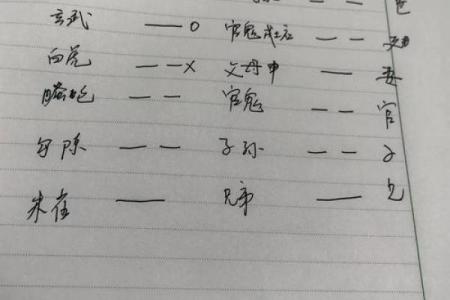 玄武 —— O 官鬼戌土 — —
白虎 — — X 父母申 —— 父
螣蛇 — — 官鬼 — — 官
勾陈 — — 子孙 — — 子
朱雀 —— 兄弟 —— 兄